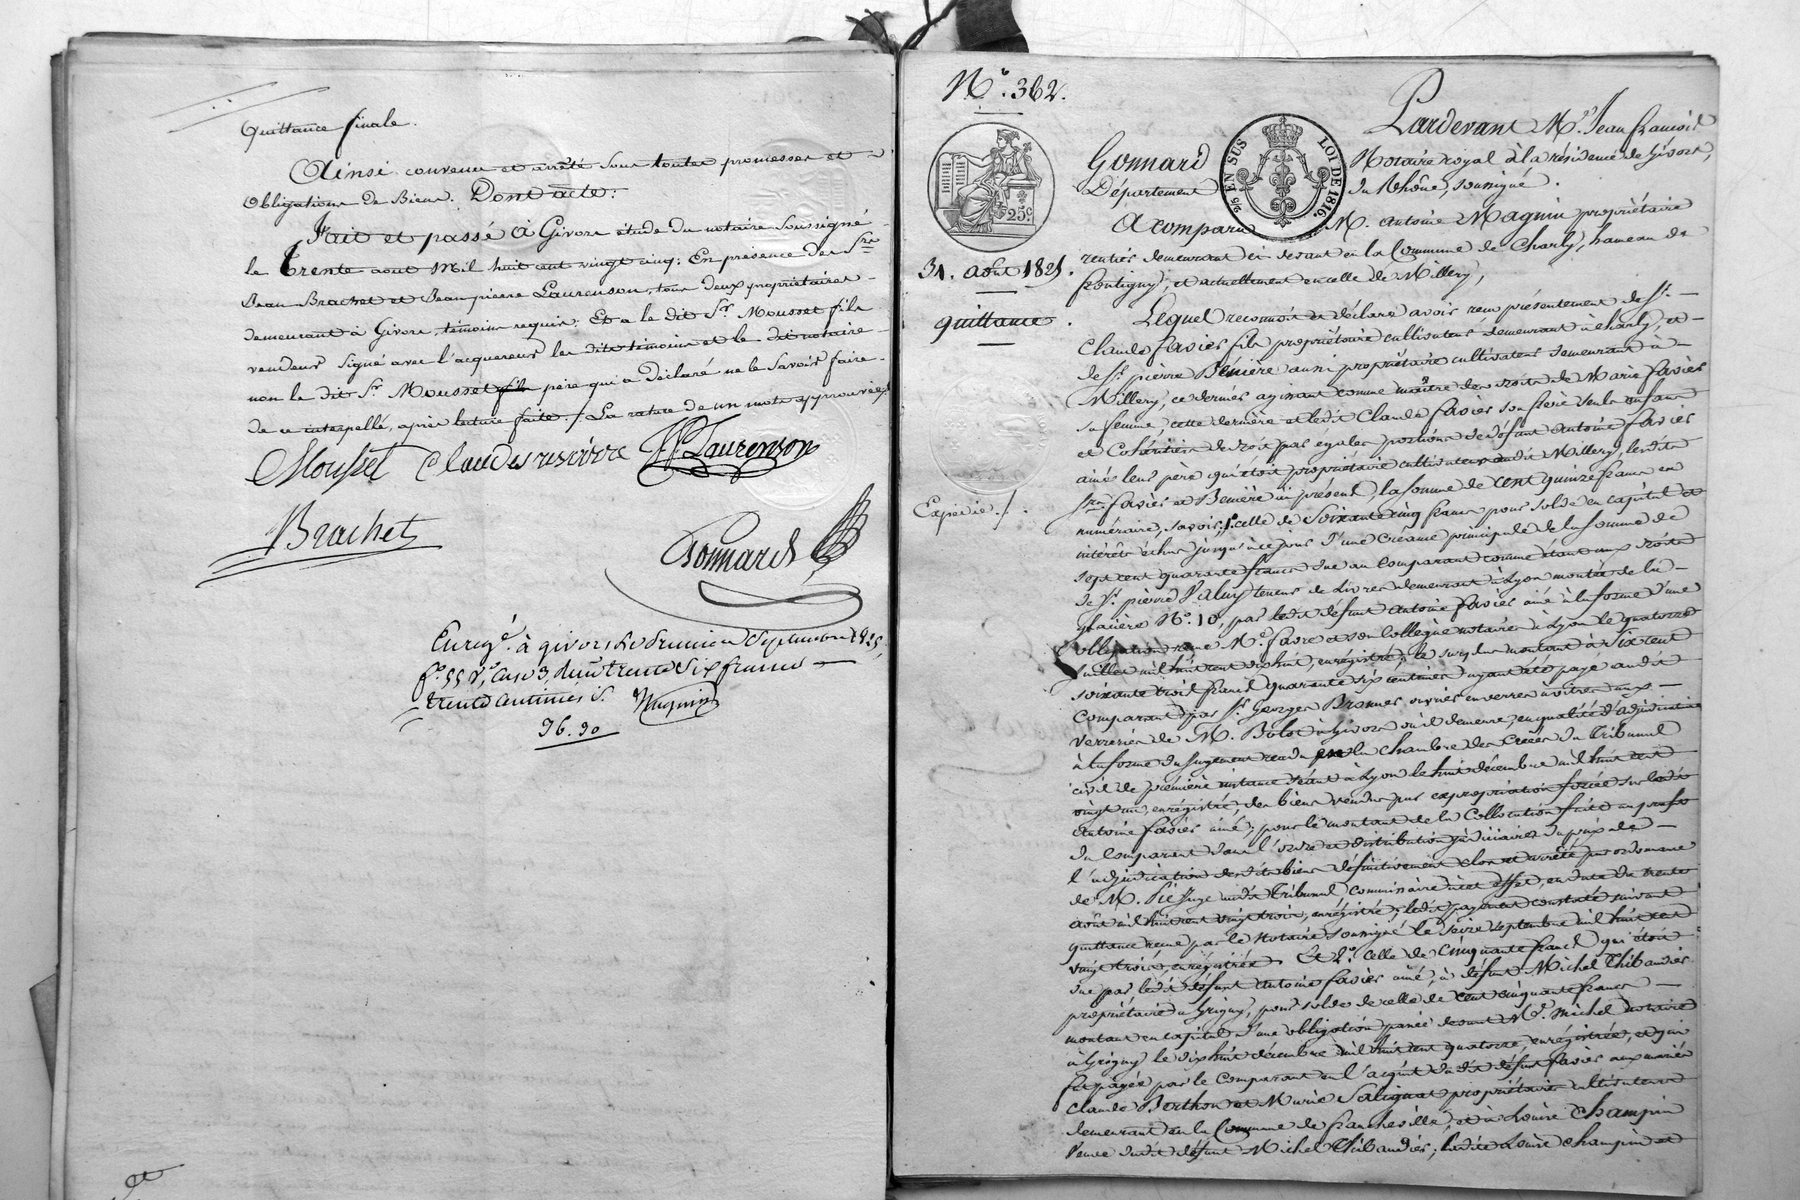 Quittance finale.
Ainsi convenu et arrêté sous toutes promesses et
obligations de Biens. Dont acte.
Fait et passé à Givors étude du notaire soussigné
le trente aout mil huit cent vingt cinq: En présence de Srs
Jean Brachet et Jean pierre Laurenson, tous deux propriétaires
demeurant à Givors, témoins requis. Et a le dit Sr. Mousset fils
vendeur signé avec l'acquereur les dits témoins et le dit notaire
non le dit Sr Mousset fils père qui a déclaré ne le savoir faire
de ce interpellé, après lecture faite. / La rature de un mot approuvée /.
Mousset Claude JP Laurenson
Brachet
Gonnard
Enregé. à givors le Septembre 1825,
fo. 55 vo, Case 3, trente six francs
trente centimes
36. 30
No. 362.
25 c
2/5 EN SUS LOI DE 1816.
31. août 1825.
quittance.
Expédiée. /.
Pardevant Me. Jean François
Gonnard Notaire royal à la résidence de Givors,
Département du Rhône, soussigné.
A comparu M. antoine Magnin propriétaire
rentier demeurant ci devant en la Commune de Charly, hameau de
frontigny, et actuellement en celle de Millery,
Lequel reconnoit et déclare avoir reçu présentement de Sr.
Claude favier fils propriétaire cultivateur demeurant à Charly, et
de Sr. pierre Benière aussi propriétaire cultivateur demeurant à
Millery, ce dernier agissant comme maître des droits de Marie favier
sa femme, cette dernière et ledit Claude favier son frère seuls enfans
et Cohéritiers de droit par egales portions de défunt Antoine favier
ainé leur père qui étoit propriétaire cultivateur audit Millery, lesdits
Srs. favier et Benière ici présent, la somme de cent quinze francs en
numéraire, savoir, 1o. celle de soixante cinq francs pour solde en capital et
intérêts échus jusqu'à ce jour d'une Créance principale de la somme de
sept cent quarante francs due au Comparant comme étant aux droits
de Sr. pierre teneur de Livres demeurant à Lyon montée de la
glacière No. 10, par ledit défunt Antoine favier ainé à la forme d'une
obligation reçue Me. favre et son Collègue notaires à Lyon le quatorze
juillet mil huit cent dix huit, enregistrée; le surplus montant à six cent
soixante trois francs quarante six centimes ayant été payé audit
Comparant par Sr. Georges Bronner ouvrier en verres à vitres aux
verreries de M. Bolot à Givors où il demeure, en qualité d'adjudicataire
à la forme du jugement rendu en la chambre des Criées du Tribunal
civil de première instance séant à Lyon le huit décembre mil huit cent
vingt un, enregistré, des biens vendus par expropriation forcée sur ledit
Antoine favier ainé, pour le montant de la Collocation faite au profit
du Comparant dans l'ordre et distribution judiciaires du prix de
l'adjudication desdits biens définitivement clos et arrêté par ordonnance
de M. juge audit Tribunal commissaire à cet effet, en date du trente
août mil huit cent vingt trois, enregistré; ledit payement constaté suivant
quittance reçue par le Notaire soussigné le seize septembre mil huit cent
vingt trois, enregistrée. Et 2o. celle de cinquante francs qui étoit
due par ledit défunt Antoine favier ainé, à défunt Michel Thibaudier
propriétaire à Grigny, pour solde de celle de cent cinquante francs
montant en capital d'une obligation passée devant Me. Michel notaire
à Grigny le dix huit décembre mil huit cent quatorze, enregistrée, et qui
fut payée par le Comparant en l'acquit dudit défunt favier aux mariés
Claude Berthon et Marie Salignat propriétaires cultivateurs
demeurant en la Commune de francheville, et à Louise Champin
veuve dudit défunt Michel Thibaudier; ladite Louise Champin et